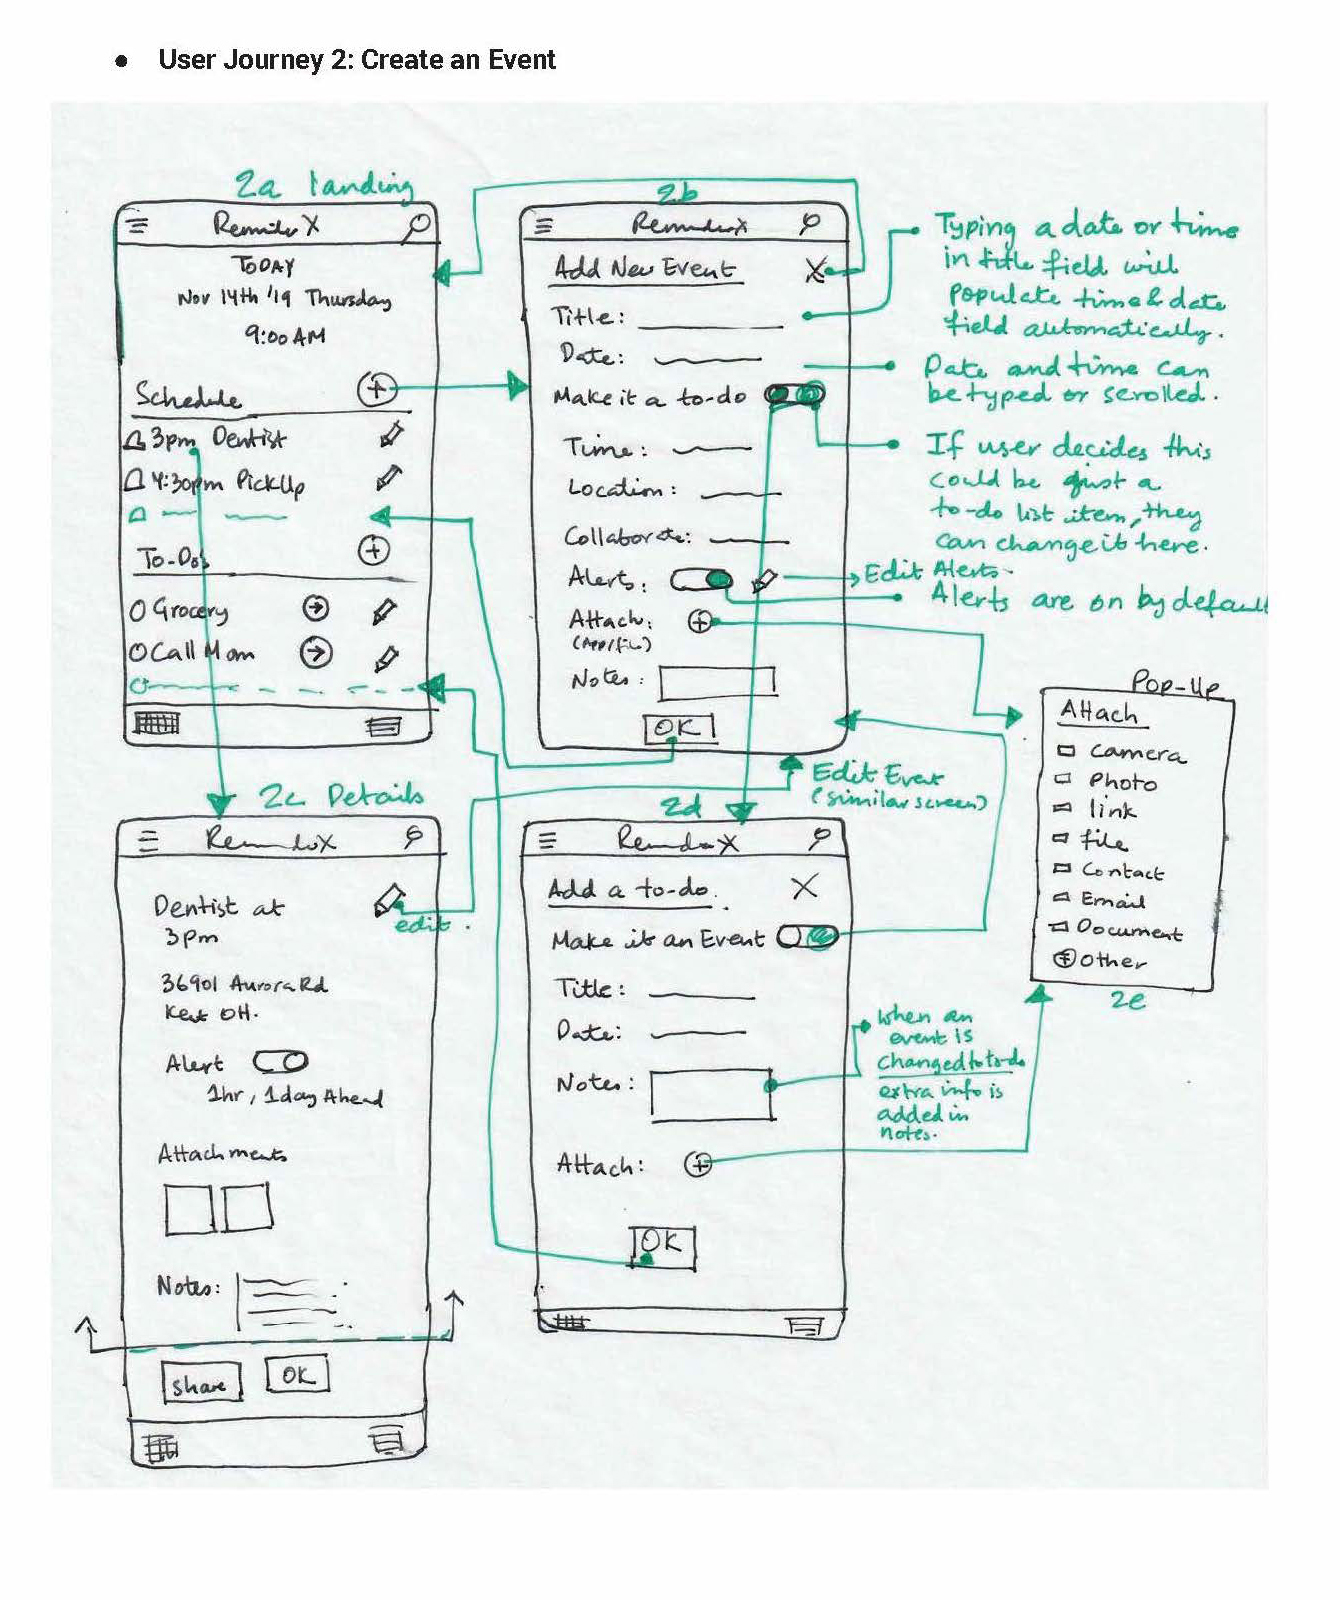 ● User Journey 2: Create an Event
2a landing
RemindoX
TODAY
Nov 14th '19 Thursday
9:00 AM
Schedule
3pm Dentist
4:30pm PickUp
To-Dos
Grocery
Call Mom
2b
RemindoX
Add New Event X
Title:
Date:
Make it a to-do
Time:
Location:
Collaborate:
Alerts:
Attach:
(App/file)
Notes:
OK
Typing a date or time
in title field will
populate time & date
field automatically.
Date and time can
be typed or scrolled.
If user decides this
could be just a
to-do list item, they
can change it here.
Edit Alerts.
Alerts are on by default
Pop-Up
Attach
Camera
Photo
link
file
Contact
Email
Document
Other
2e
Edit Event
(similar screen)
2c Details
RemindoX
Dentist at
3pm
edit.
36901 Aurora Rd
Kent OH.
Alert
1hr, 1day Ahead
Attachments
Notes:
Share
OK
2d
RemindoX
Add a to-do. X
Make it an Event
Title:
Date:
Notes:
Attach:
OK
When an
event is
changed to to-do
extra info is
added in
notes.